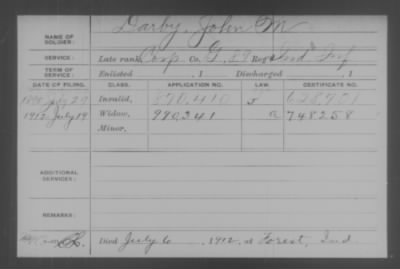 NAME OF SOLDIER: Darby, John M
SERVICE: Late rank, Corp Co. G, 89 Reg't Ind Inf
TERM OF SERVICE: Enlisted , 1 Discharged , 1
DATE OF FILING. CLASS. APPLICATION NO. LAW. CERTIFICATE NO.
1890 July 29 Invalid, 890,410
1912 July 19 Widow, 990,241 748258
Minor,
ADDITIONAL SERVICES:
REMARKS:
Died July 6 1912, at Forest, Ind.